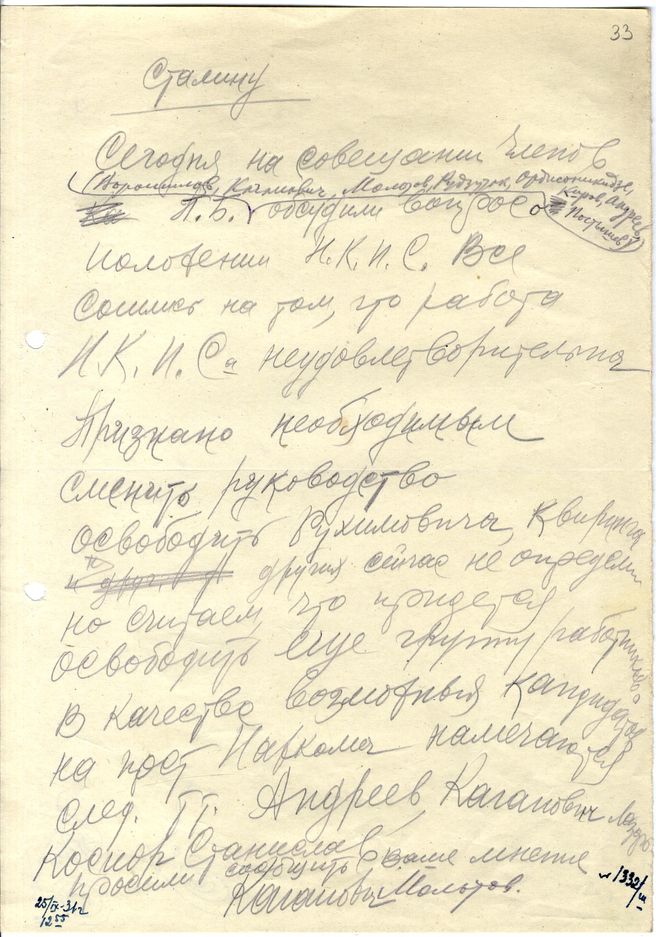 33
Сталину
Сегодня на совещании членов
(Ворошилов, Каганович, Молотов, Рудзутак, Орджоникидзе,
Киров, Андреев
Постышев)
П.Б. обсудили вопрос о
положении Н.К.П.С. Все
сошлись на том, что работа
Н.К.П.Са неудовлетворительна
Признано необходимым
сменить руководство
освободить Рухимовича, Квиринга
и друг.
других сейчас не определ
но считаем, что придется
освободить еще группу работников
в качестве возможных кандидатов
на пост Наркома намечаются
след. т.т. Андреев, Каганович Лазарь
Косиор Станислав
просим сообщить ваше мнение
Каганович Молотов.
25/IX-31 г
12 55
1332/ш